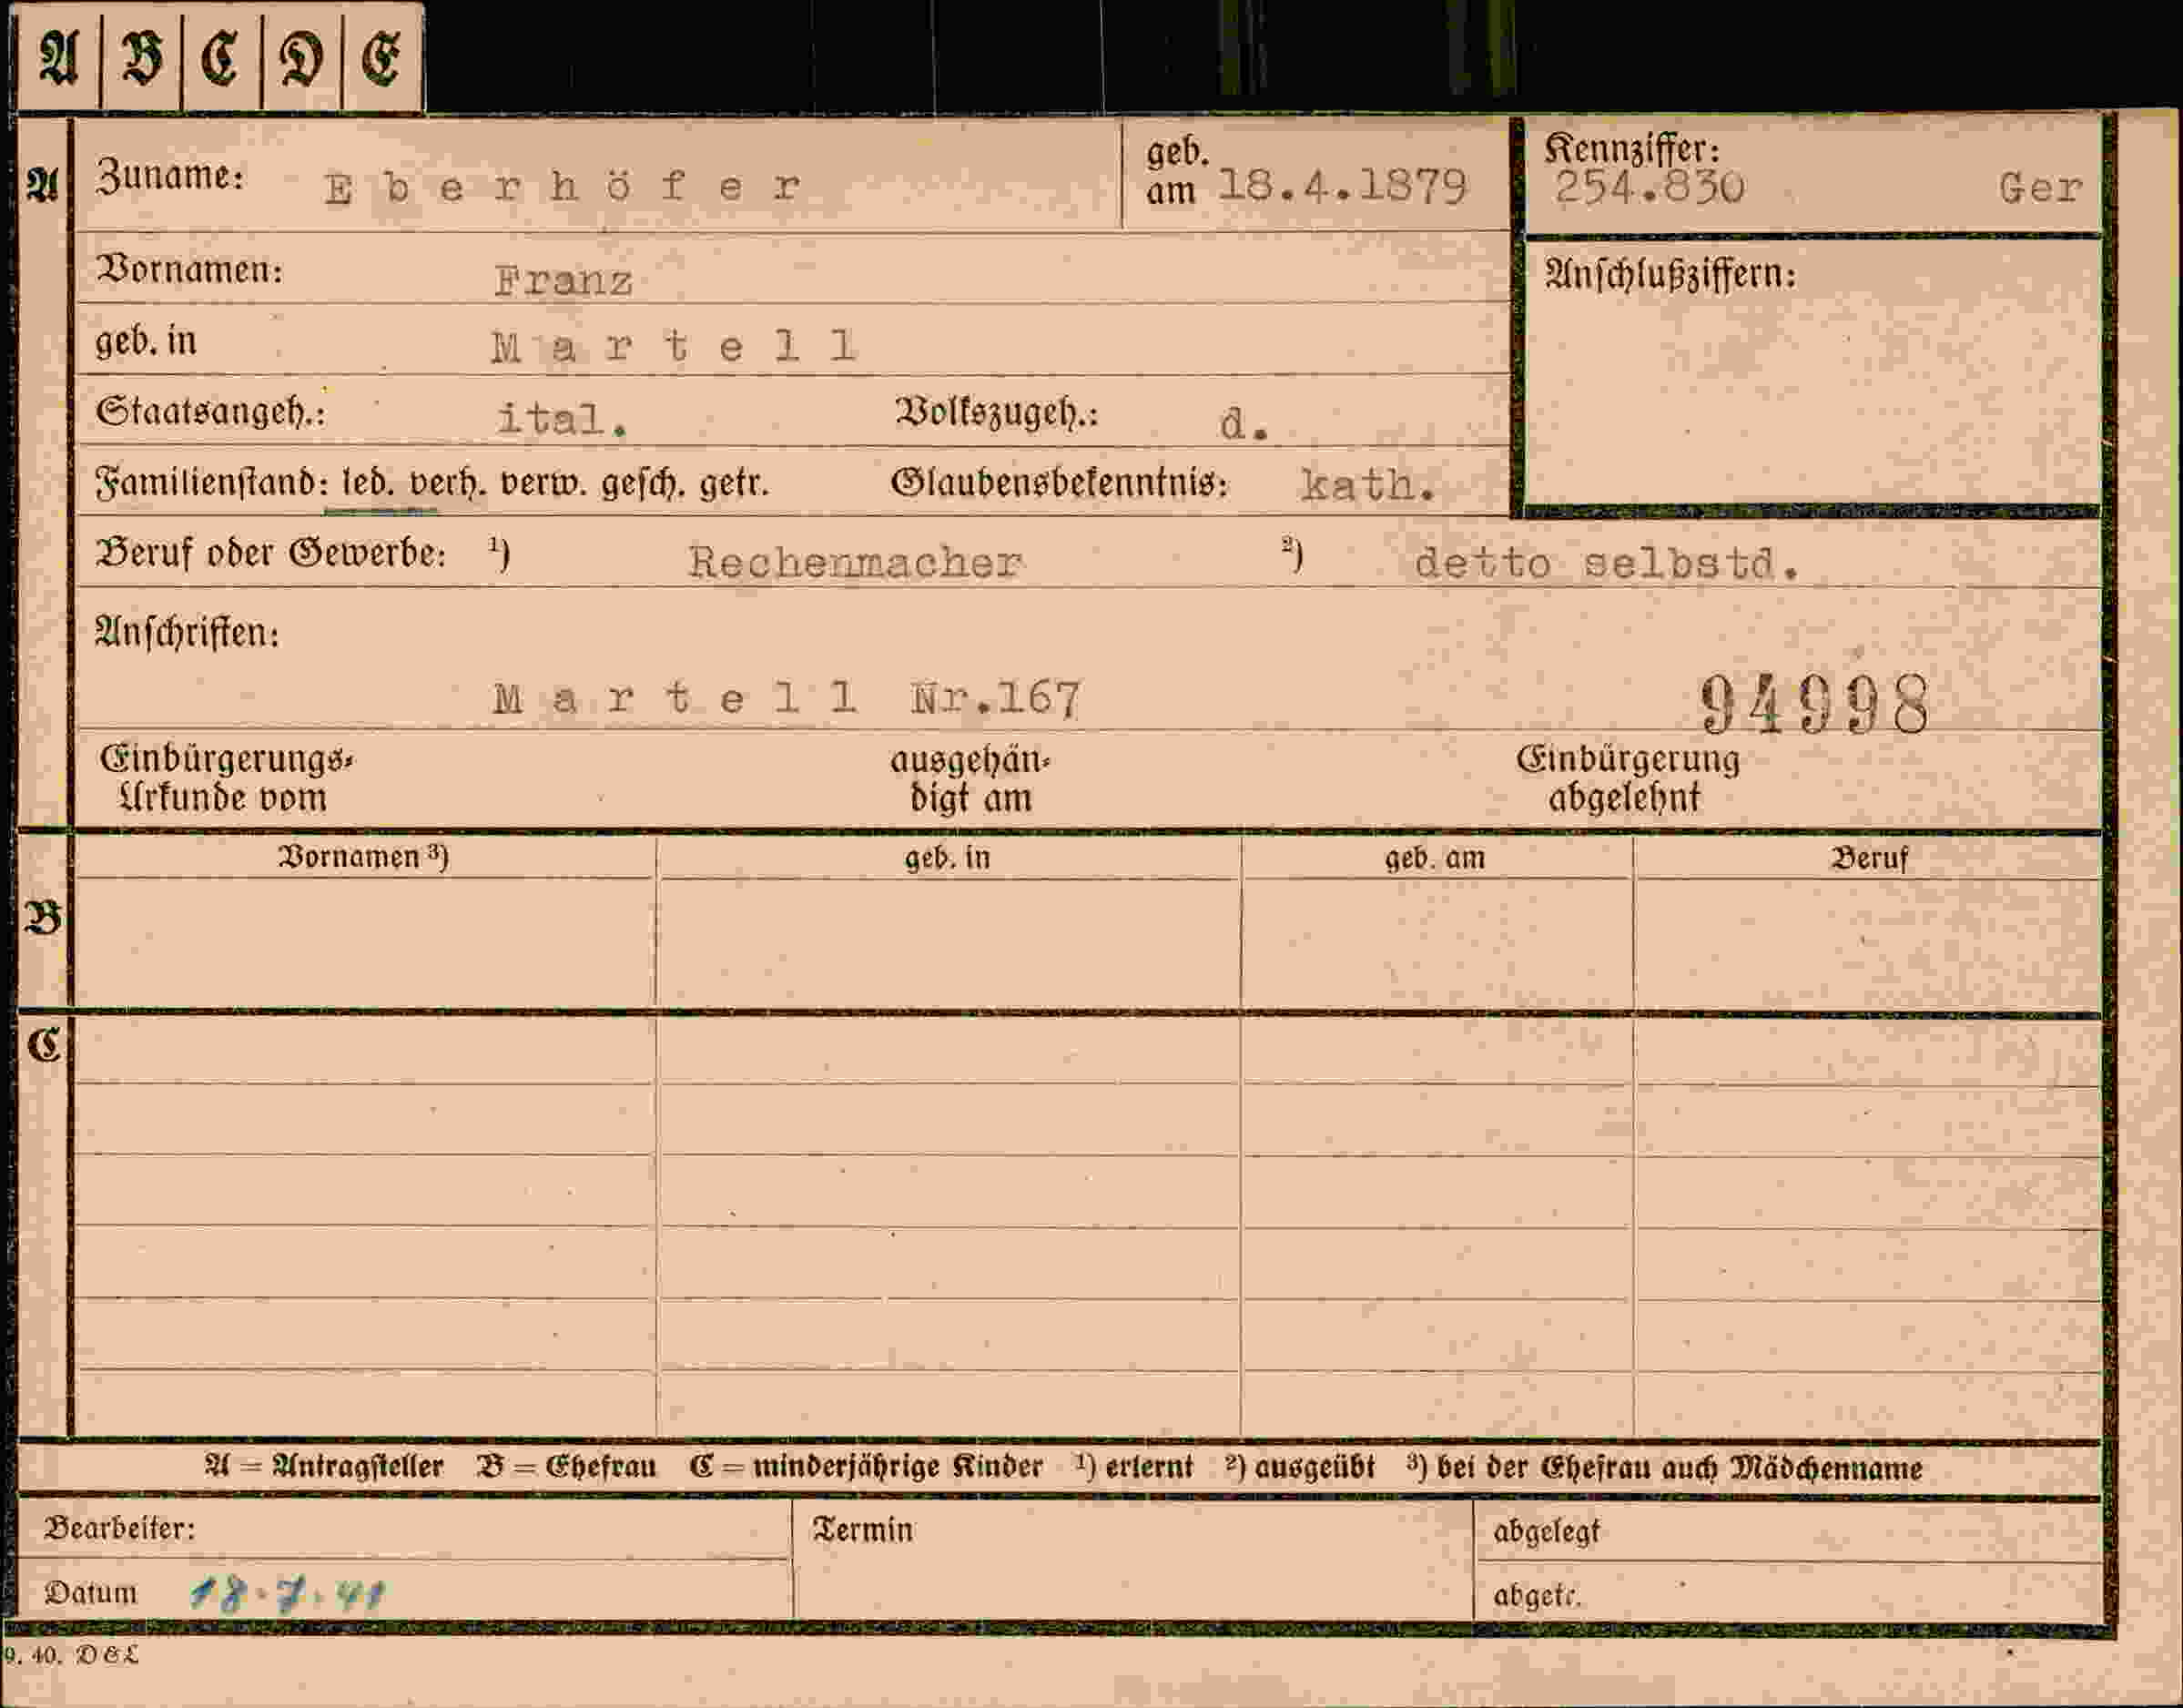 A B C D E
A Zuname: Eberhöfer geb. am 18.4.1879 Kennziffer: 254.830 Ger
Vornamen: Franz Anschlußziffern:
geb. in Martell
Staatsangeh.: ital. Volkszugeh.: d.
Familienstand: led. verh. verw. gesch. getr. Glaubensbekenntnis: kath.
Beruf oder Gewerbe: ¹) Rechenmacher ²) detto selbstd.
Anschriften:
Martell Nr.167 94998
Einbürgerungs- ausgehän- Einbürgerung
Urkunde vom digt am abgelehnt
Vornamen ³) geb. in geb. am Beruf
B
C
A = Antragsteller B = Ehefrau C = minderjährige Kinder ¹) erlernt ²) ausgeübt ³) bei der Ehefrau auch Mädchenname
Bearbeiter: Termin abgelegt
Datum 18.7.41 abgetr.
9. 40. D&L